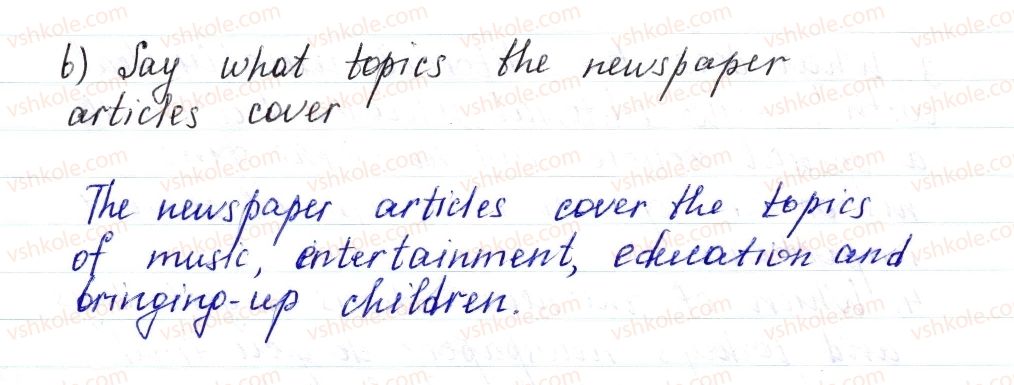 b) Say what topics the newspaper
articles cover
The newspaper articles cover the topics
of music, entertainment, education and
bringing-up children.